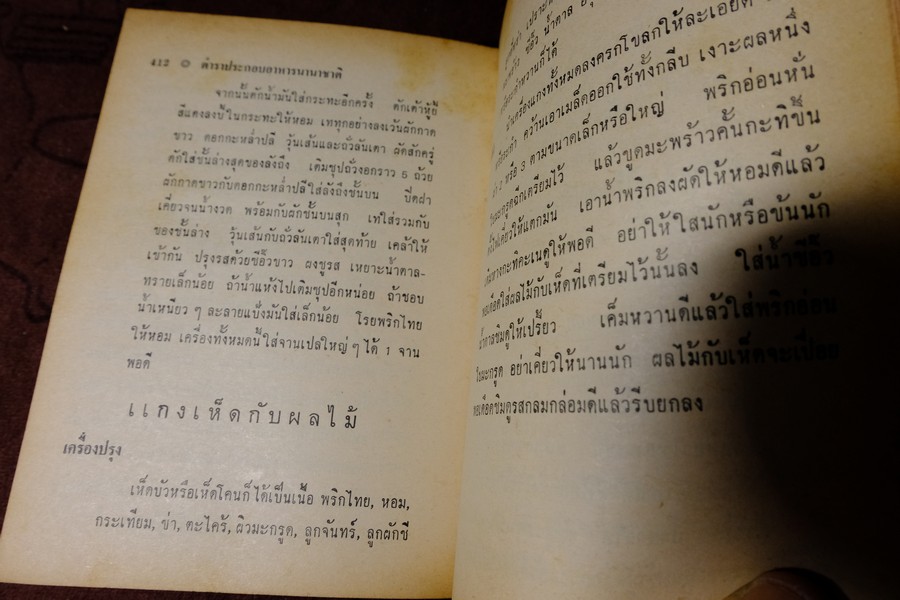 412 ตำราประกอบอาหารนานาชาติ
จากนั้นตักน้ำมันใส่กระทะอีกครั้ง ตักเต้าหู้ยี้
สีแดงลงบี้ในกระทะให้หอม เททุกอย่างลงเว้นผักกาด
ขาว ดอกกะหล่ำปลี วุ้นเส้นและถั่วลันเตา ผัดสักครู่
ตักใส่ชั้นล่างสุดของลังถึง เติมซุปถั่วงอกราว 5 ถ้วย
ผักกาดขาวกับดอกกะหล่ำปลีใส่ลังถึงชั้นบน ปิดฝา
เคี่ยวจนน้ำงวด พร้อมกับผักชั้นบนสุก เทใส่รวมกับ
ของชั้นล่าง วุ้นเส้นกับถั่วลันเตาใส่สุดท้าย เคล้าให้
เข้ากัน ปรุงรสด้วยซีอิ๊วขาว ผงชูรส เหยาะน้ำตาล-
ทรายเล็กน้อย ถ้าน้ำแห้งไปเติมซุปอีกหน่อย ถ้าชอบ
น้ำเหนียว ๆ ละลายแป้งมันใส่เล็กน้อย โรยพริกไทย
ให้หอม เครื่องทั้งหมดนี้ใส่จานเปลใหญ่ ๆ ได้ 1 จาน
พอดี
แกงเห็ดกับผลไม้
เครื่องปรุง
เห็ดบัวหรือเห็ดโคนก็ได้เป็นเนื้อ พริกไทย, หอม,
กระเทียม, ข่า, ตะไคร้, ผิวมะกรูด, ลูกจันทร์, ลูกผักชี
ซีอิ๊ว น้ำตาล
หวานก็ได้
นำเครื่องแกงทั้งหมดลงครกโขลกให้ละเอียด
คว้านเอาเมล็ดออกใช้ทั้งกลีบ เงาะผลหนึ่ง
2 หรือ 3 ตามขนาดเล็กหรือใหญ่ พริกอ่อนหั่น
ฉีกเตรียมไว้ แล้วขูดมะพร้าวคั้นกะทิข้น
เคี่ยวให้แตกมัน เอาน้ำพริกลงผัดให้หอมดีแล้ว
หางกะทิคะเนดูให้พอดี อย่าให้ใสนักหรือข้นนัก
ใส่ผลไม้กับเห็ดที่เตรียมไว้นั้นลง ใส่น้ำซีอิ๊ว
น้ำตาลชิมดูให้เปรี้ยว เค็มหวานดีแล้วใส่พริกอ่อน
ใบมะกรูด อย่าเคี่ยวให้นานนัก ผลไม้กับเห็ดจะเปื่อย
พอเดือดชิมดูรสกลมกล่อมดีแล้วรีบยกลง